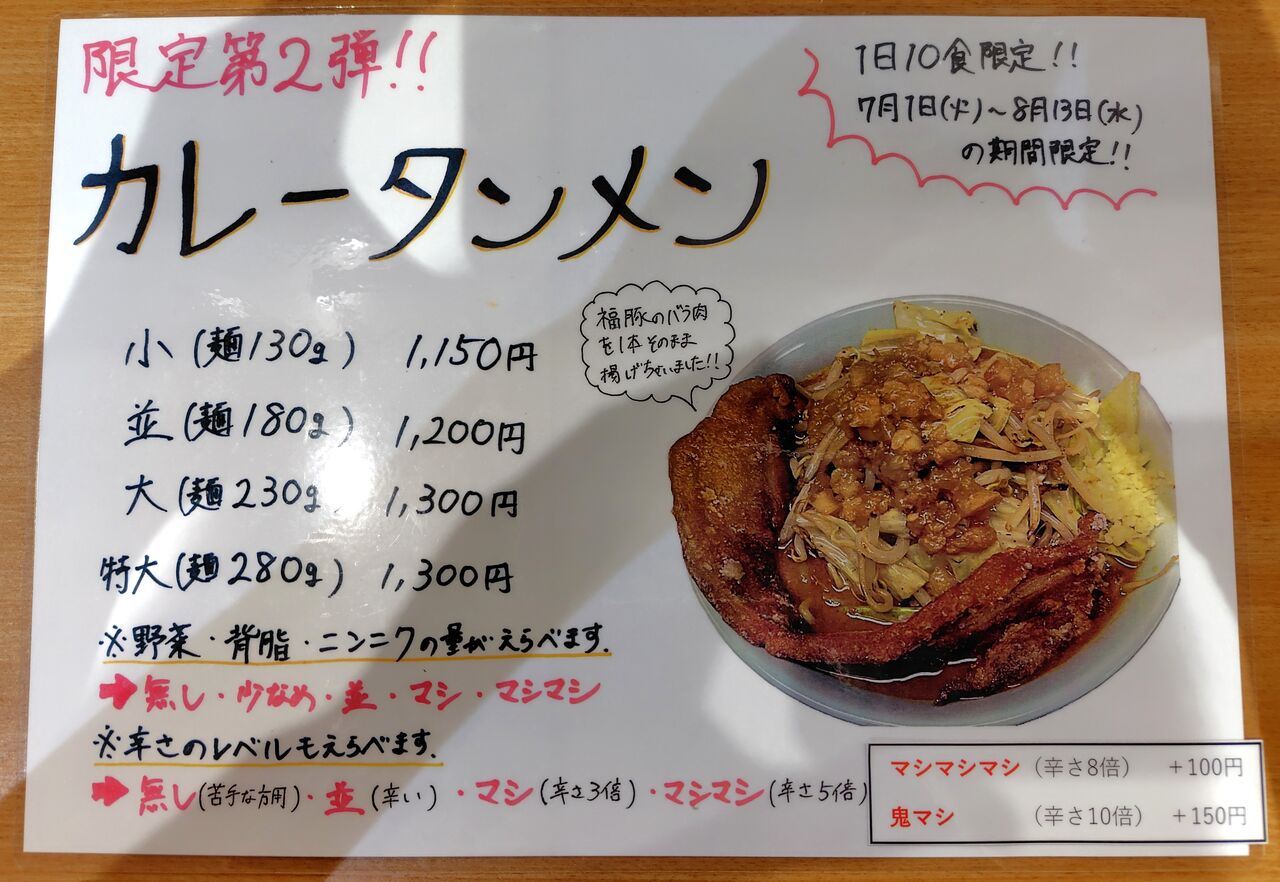 限定第2弾!!
1日10食限定!!
7月1日(火)～8月13日(水)
の期間限定!!
カレータンメン
福豚のバラ肉
を1本そのまま
揚げちゃいました!!
小(麺130g) 1,150円
並(麺180g) 1,200円
大(麺230g) 1,300円
特大(麺280g) 1,300円
※野菜・背脂・ニンニクの量がえらべます.
➡無し・少なめ・並・マシ・マシマシ
※辛さのレベルもえらべます.
➡無し(苦手な方用)・並(辛い)・マシ(辛さ3倍)・マシマシ(辛さ5倍)
マシマシマシ (辛さ8倍) +100円
鬼マシ (辛さ10倍) +150円